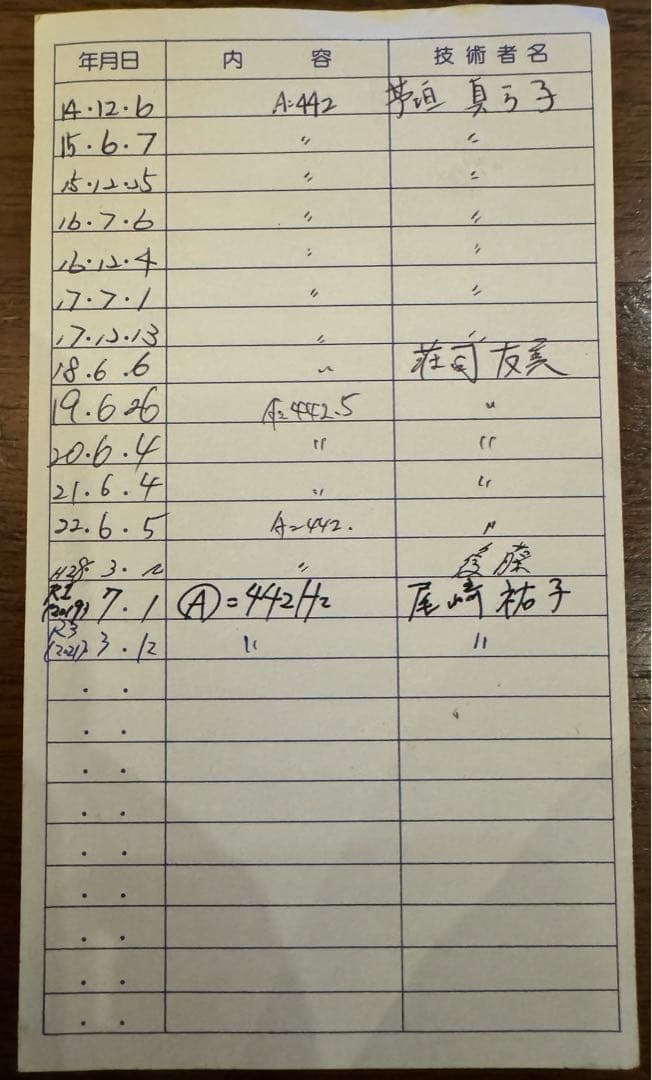 年月日 内容 技術者名
14・12・6 A=442 真弓子
15・6・7 〃 〃
15・12・15 〃 〃
16・7・6 〃 〃
16・12・4 〃 〃
17・7・1 〃 〃
17・12・13 〃 〃
18・6・6 〃 荘司友美
19・6・26 A=442.5 〃
20・6・4 〃 〃
21・6・4 〃 〃
22・6・5 A=442. 〃
H28・3・12 〃 後藤
R1
(2019) 7・1 Ⓐ=442Hz 尾崎祐子
R3
(2021) 3・12 〃 〃